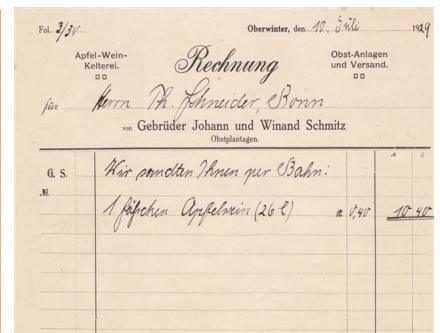 Fol. 3/30 Oberwinter, den 10. Juli 1929
Apfel-Wein-
Kelterei.
Rechnung
Obst-Anlagen
und Versand.
für Herrn Th. Schneider, Bonn
von Gebrüder Johann und Winand Schmitz
Obstplantagen.
G. S. Wir sandten Ihnen per Bahn:
№
1 Fäßchen Apfelwein (26 l) a 0,40 10 40